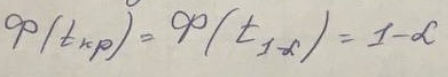 Φ(t кр) = Φ(t 1-α) = 1-α